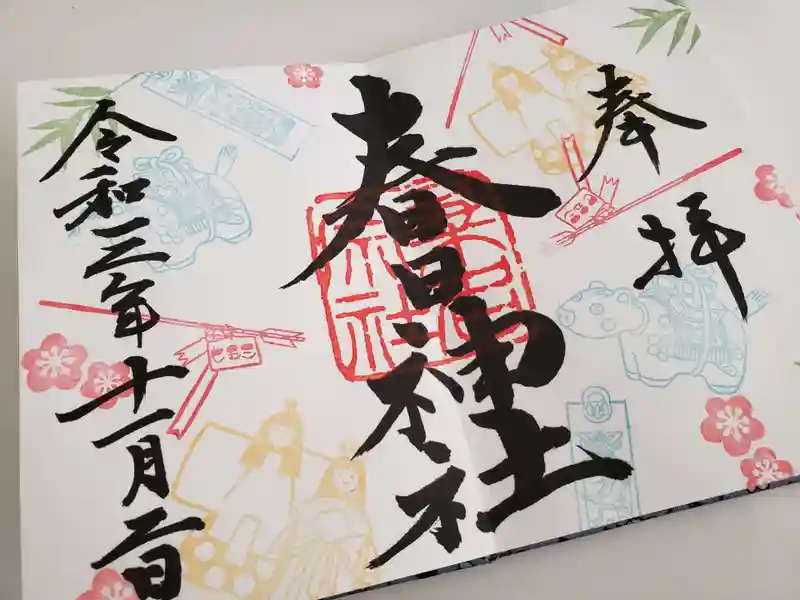 奉拝
春日神社
令和三年十一月二日